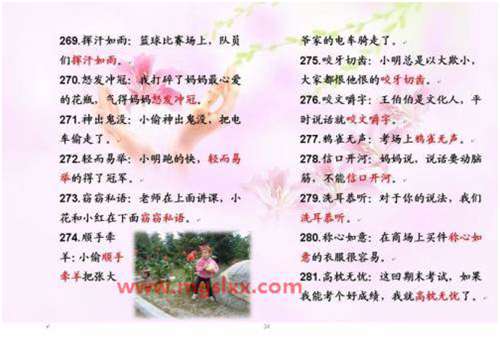 269.挥汗如雨：篮球比赛场上，队员
们挥汗如雨。
270.怒发冲冠：我打碎了妈妈最心爱
的花瓶，气得妈妈怒发冲冠。
271.神出鬼没：小偷神出鬼没，把电
车偷走了。
272.轻而易举：小明跑的快，轻而易
举的得了冠军。
273.窃窃私语：老师在上面讲课，小
花和小红在下面窃窃私语。
274.顺手牵
羊：小偷顺手
牵羊把张大
爷家的电车骑走了。
275.咬牙切齿：小明总是以大欺小，
大家都恨他恨的咬牙切齿。
276.咬文嚼字：王伯伯是文化人，平
时说话就咬文嚼字。
277.鸦雀无声：考场上鸦雀无声。
278.信口开河：妈妈说，说话要动脑
筋，不能信口开河。
279.洗耳恭听：对于你的说法，我们
洗耳恭听。
280.称心如意：在商场上买件称心如
意的衣服很容易。
281.高枕无忧：这回期末考试，如果
我能考个好成绩，我就高枕无忧了。
www.mgslxx.com